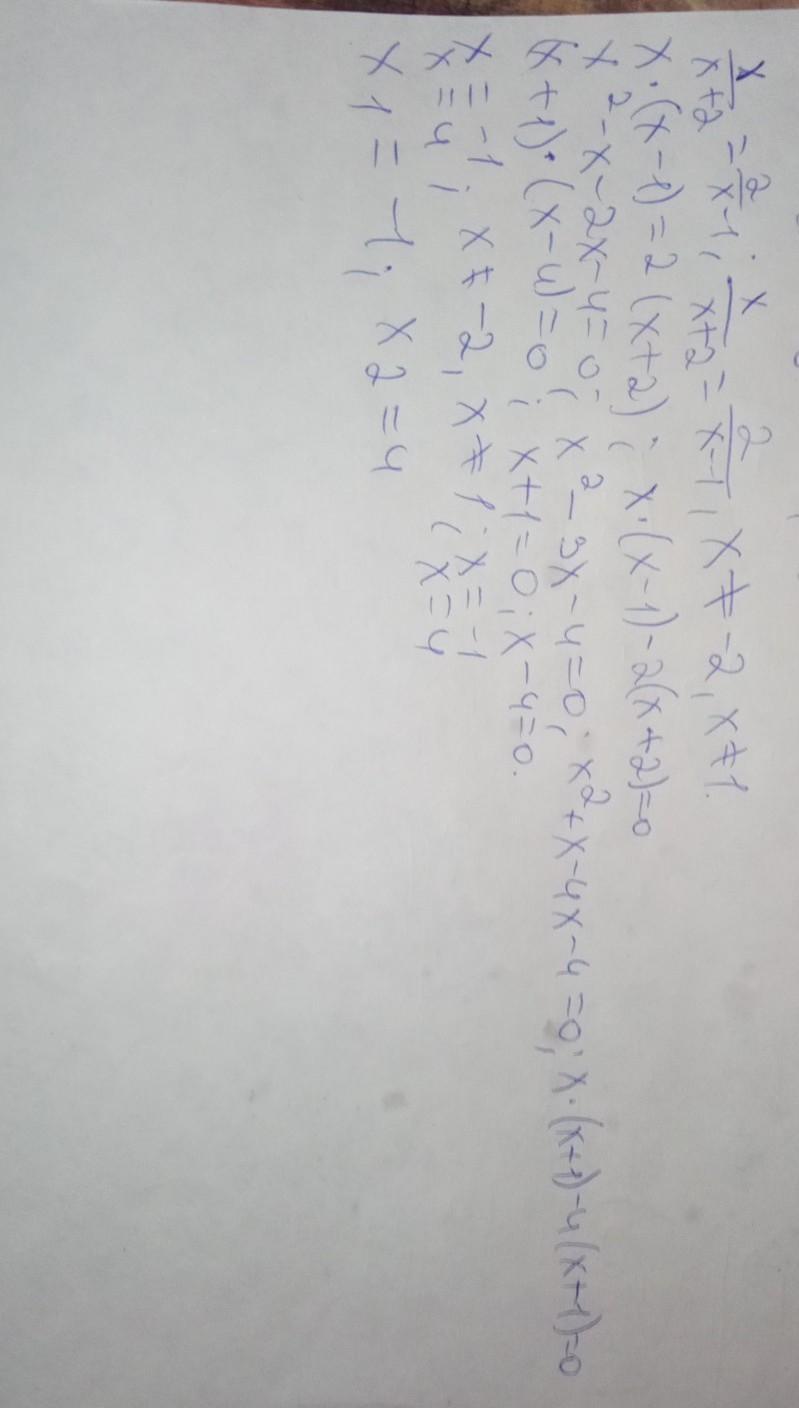 x/x+2 = 2/x-1; x/x+2 = 2/x-1, x ≠ -2, x ≠ 1.
x·(x-1) = 2(x+2); x·(x-1)-2(x+2)=0
x²-x-2x-4=0; x²-3x-4=0; x²+x-4x-4=0; x·(x+1)-4(x+1)=0
(x+1)·(x-4)=0; x+1=0; x-4=0.
x = -1; x ≠ -2, x ≠ 1; x = -1
x = 4; x = 4
x1 = -1; x2 = 4